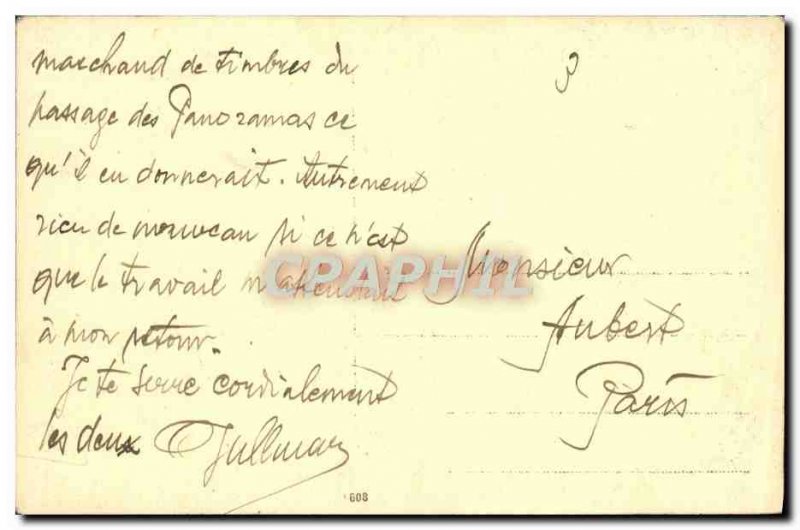 marchand de timbres du
passage des Panoramas ce
qu'il en donnerait. Autrement
rien de nouveau si ce n'est
que le travail m'attendait
à mon retour.
Je te serre cordialement
les deux
Monsieur
Aubert
Paris
CPAPHIL
608